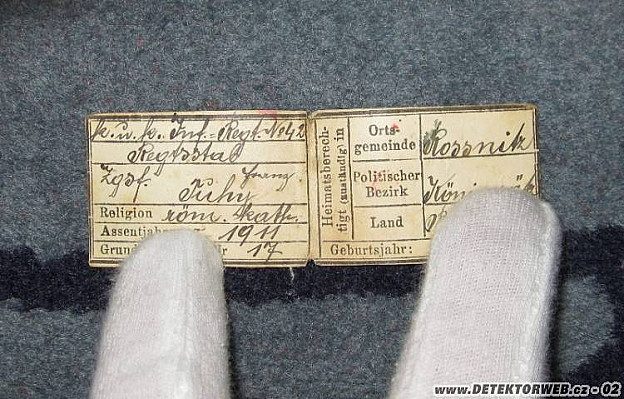 k. u. k. Inf.-Regt. No 42
Regtsstab
Zgsf. Franz
Tichy
Religion röm. kath.
Assentjah 1911
Grund 17
Heimatsberech-
tigt (zuständig) in
Orts-
gemeinde Rossnitz
Politischer
Bezirk
Land
Geburtsjahr:
www.DETEKTORWEB.cz - 02